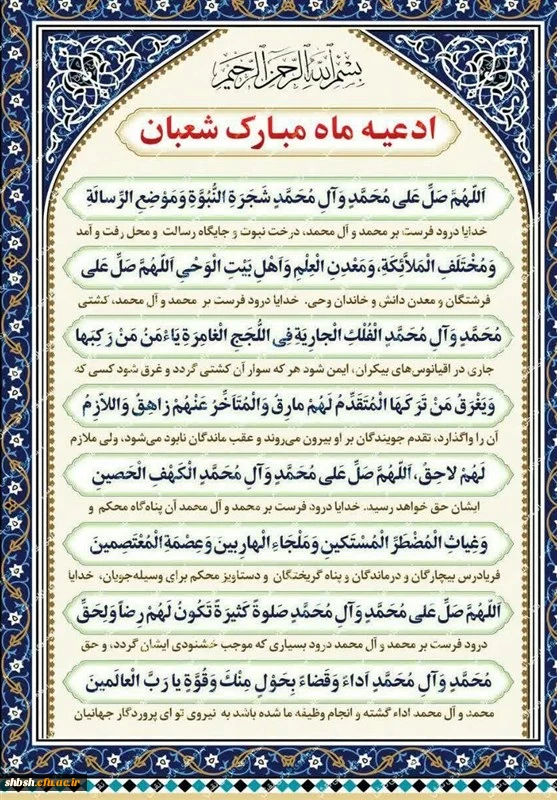 بسم الله الرحمن الرحیم
ادعیه ماه مبارک شعبان
اَللّٰهُمَّ صَلِّ عَلی مُحَمَّدٍ وَآلِ مُحَمَّدٍ شَجَرَةِ النُّبُوَّةِ وَمَوْضِعِ الرِّسالَةِ
خدایا درود فرست بر محمد و آل محمد، درخت نبوت و جایگاه رسالت و محل رفت و آمد
وَمُخْتَلَفِ الْمَلاَّئِكَةِ، وَمَعْدِنِ الْعِلْمِ وَاَهْلِ بَيْتِ الْوَحْیِ اَللّهُمَّ صَلِّ عَلی
فرشتگان و معدن دانش و خاندان وحی. خدایا درود فرست بر محمد و آل محمد، کشتی
مُحَمَّدٍ وَآلِ مُحَمَّدٍ الْفُلْكِ الْجارِيَةِ فِی اللُّجَجِ الْغامِرَةِ يَاْءمَنُ مَنْ رَكِبَها
جاری در اقیانوس‌های بیکران، ایمن شود هر که سوار آن کشتی گردد و غرق شود کسی که
وَيَغْرَقُ مَنْ تَرَكَهَا الْمُتَقَدِّمُ لَهُمْ مارِقٌ وَالْمُتَاَخِّرُ عَنْهُمْ زاهِقٌ وَاللاّزِمُ
آن را واگذارد، تقدم جویندگان بر او بیرون می‌روند و عقب ماندگان نابود می‌شود، ولی ملازم
لَهُمْ لاحِقٌ، اَللّهُمَّ صَلِّ عَلی مُحَمَّدٍ وَآلِ مُحَمَّدٍ الْكَهْفِ الْحَصينِ
ایشان حق خواهد رسید. خدایا درود فرست بر محمد و آل محمد آن پناه‌گاه محکم و
وَغِياثِ الْمُضْطَرِّ الْمُسْتَكينِ وَمَلْجَاءِ الْهارِبينَ وَعِصْمَةِ الْمُعْتَصِمينَ
فریادرس بیچارگان و درماندگان و پناه گریختگان و دستاویز محکم برای وسیله‌جویان، خدایا
اَللّهُمَّ صَلِّ عَلی مُحَمَّدٍ وَآلِ مُحَمَّدٍ صَلوةً كَثيرَةً تَكُونُ لَهُمْ رِضاً وَلِحَقِّ
درود فرست بر محمد و آل محمد درود بسیاری که موجب خشنودی ایشان گردد، و حق
مُحَمَّدٍ وَآلِ مُحَمَّدٍ اَداءً وَقَضاءً بِحَوْلٍ مِنْكَ وَقُوَّةٍ يا رَبَّ الْعالَمينَ
محمد و آل محمد اداء گشته و انجام وظیفه ما شده باشد به نیروی تو ای پروردگار جهانیان
shbsh.cfu.ac.ir